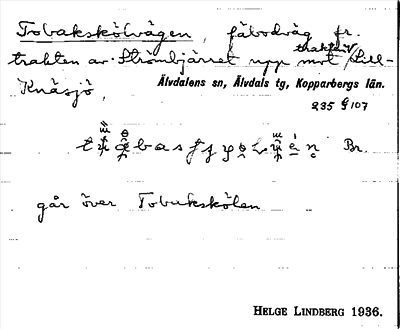 Tobakskölvägen, fäbodväg fr.
trakten av Strömbjärret upp mot trakten/Lill-
Knäsjö,
Älvdalens sn, Älvdals tg, Kopparbergs län.
235 G 107
Br.
går över Tobakskölen
HELGE LINDBERG 1936.